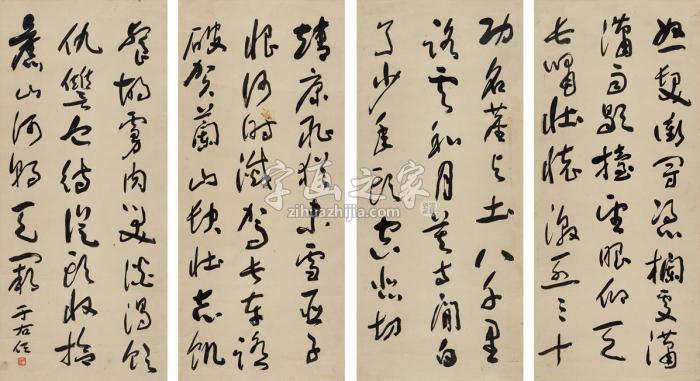 怒髮衝冠憑欄處瀟
瀟雨歇擡望眼仰天
長嘯壯懷激烈三十
功名塵與土八千里
路雲和月莫等閒白
了少年頭空悲切
靖康恥猶未雪臣子
恨何時滅駕長車踏
破賀蘭山缺壯志飢
餐胡虜肉笑談渴飲
仇讐血待從頭收拾
舊山河朝天闕 于右任
字画之家
zihuazhijia.com